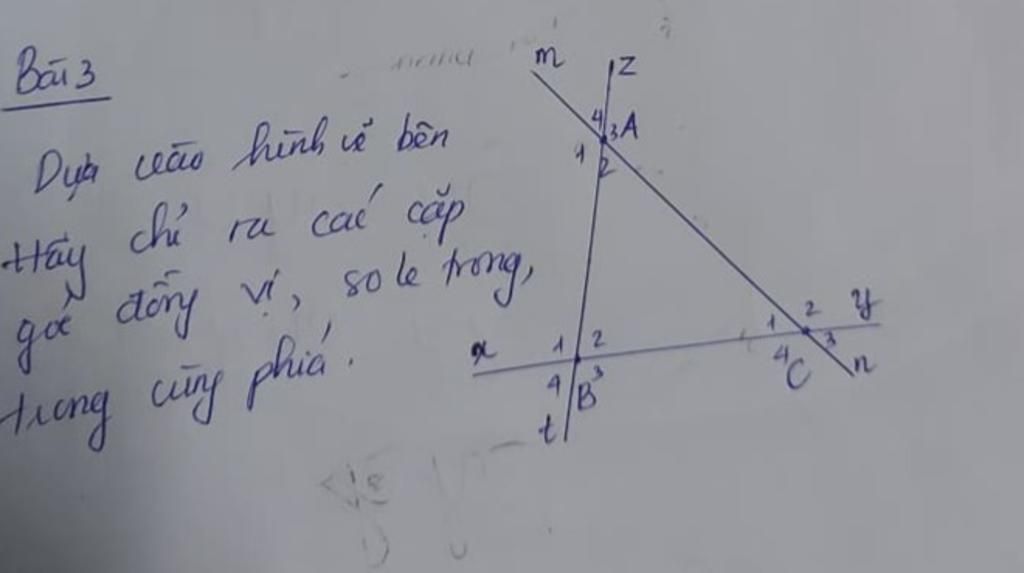 Bài 3
Dựa vào hình vẽ bên
Hãy chỉ ra các cặp
góc đồng vị, so le trong,
trong cùng phía.
m
z
4
3 A
1
2
x
1 2
4 3
B
t
1 2 y
4 3
C n